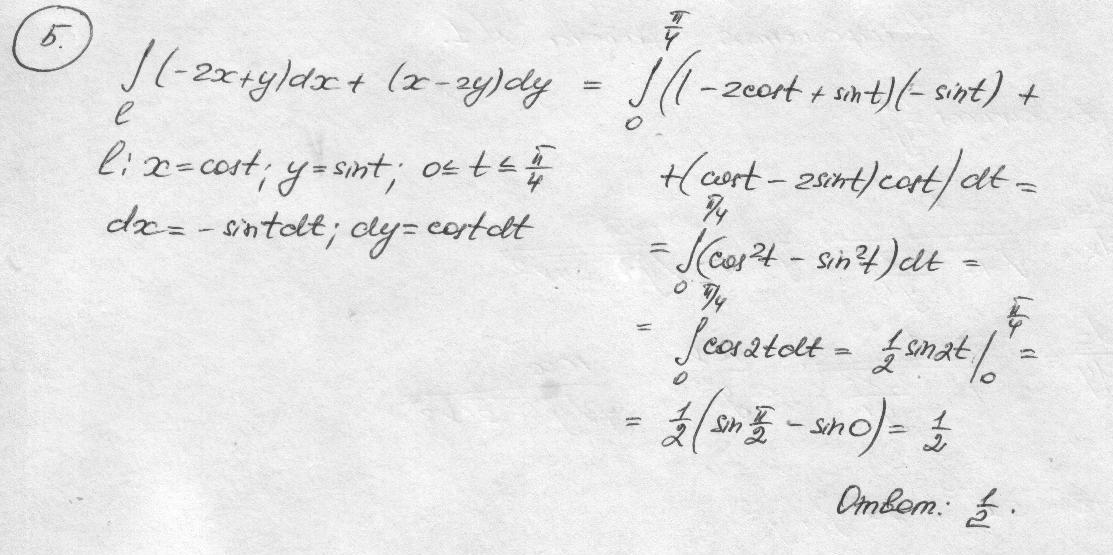 5.
∫_l (-2x+y)dx + (x-2y)dy = ∫_0^{π/4} ((-2cost + sint)(-sint) +
l: x=cost; y=sint; 0≤t≤π/4
+(cost - 2sint)cost)dt =
dx = -sintdt; dy=costdt
= ∫_0^{π/4} (cos²t - sin²t)dt =
= ∫_0^{π/4} cos2tdt = 1/2 sin2t |_0^{π/4} =
= 1/2 (sin π/2 - sin0) = 1/2
Ответ: 1/2.